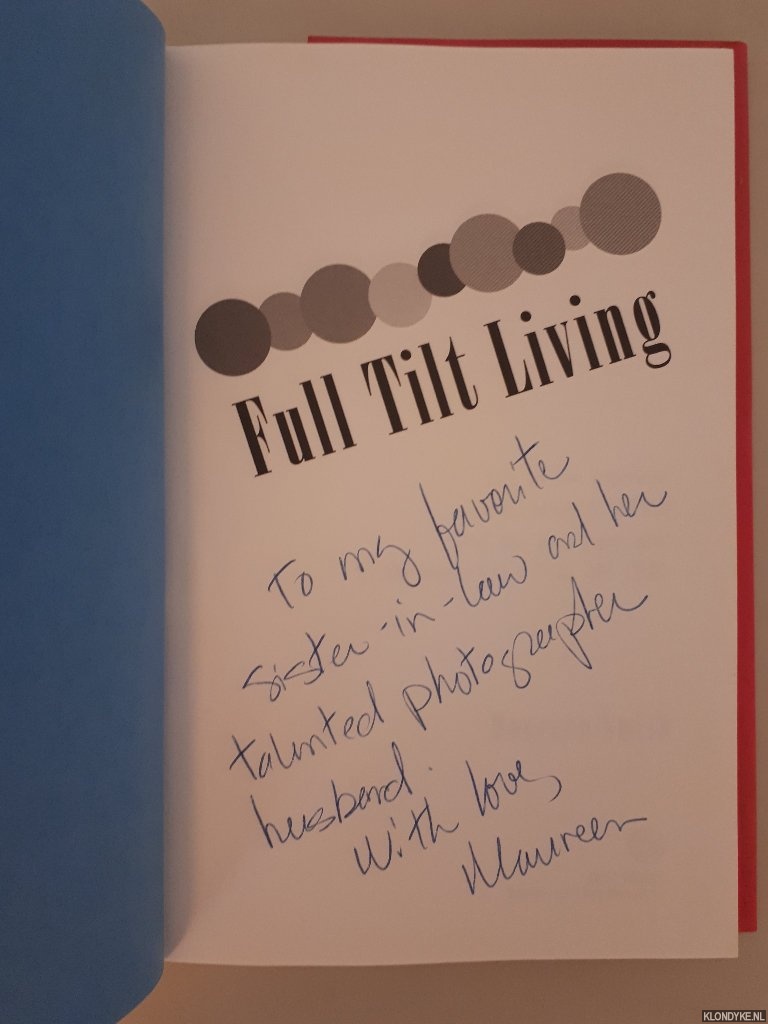 Full Tilt Living
To my favorite
sister-in-law and her
talented photographer
husband.
With love,
Maureen
KLONDYKE.NL